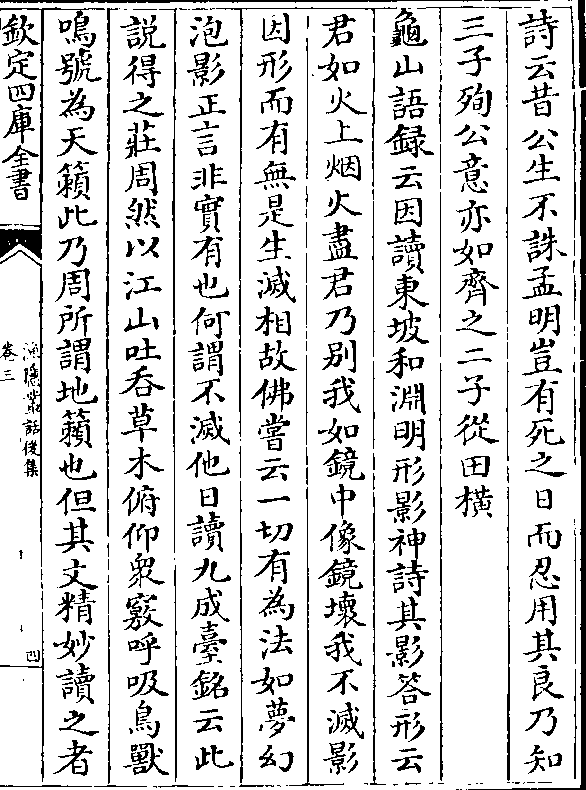 詩云昔公生不誅孟明豈有死之日而忍用其良乃知
三子殉公意亦如齊之二子從田横
龜山語録云因讀東坡和淵明形影神詩其影答形云
君如火上烟火盡君乃别我如鏡中像鏡壞我不滅影
因形而有無是生滅相故佛嘗云一切有為法如夢幻
泡影正言非實有也何謂不滅他日讀九成臺銘云此
説得之莊周然以江山吐吞草木俯仰衆竅呼吸鳥獸
鳴號為天籟此乃周所謂地籟也但其文精妙讀之者
欽定四庫全書
漁隱叢話後集
卷三
四